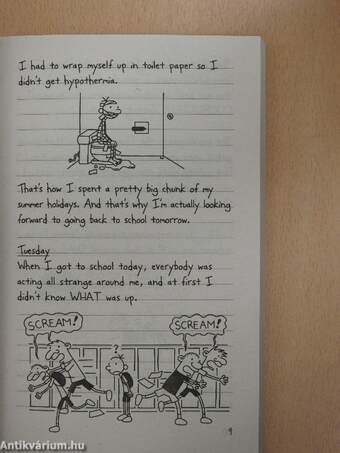 I had to wrap myself up in toilet paper so I
didn't get hypothermia.
That's how I spent a pretty big chunk of my
summer holidays. And that's why I'm actually looking
forward to going back to school tomorrow.
Tuesday
When I got to school today, everybody was
acting all strange around me, and at first I
didn't know WHAT was up.
SCREAM!
?
SCREAM!
9
Antikvárium.hu